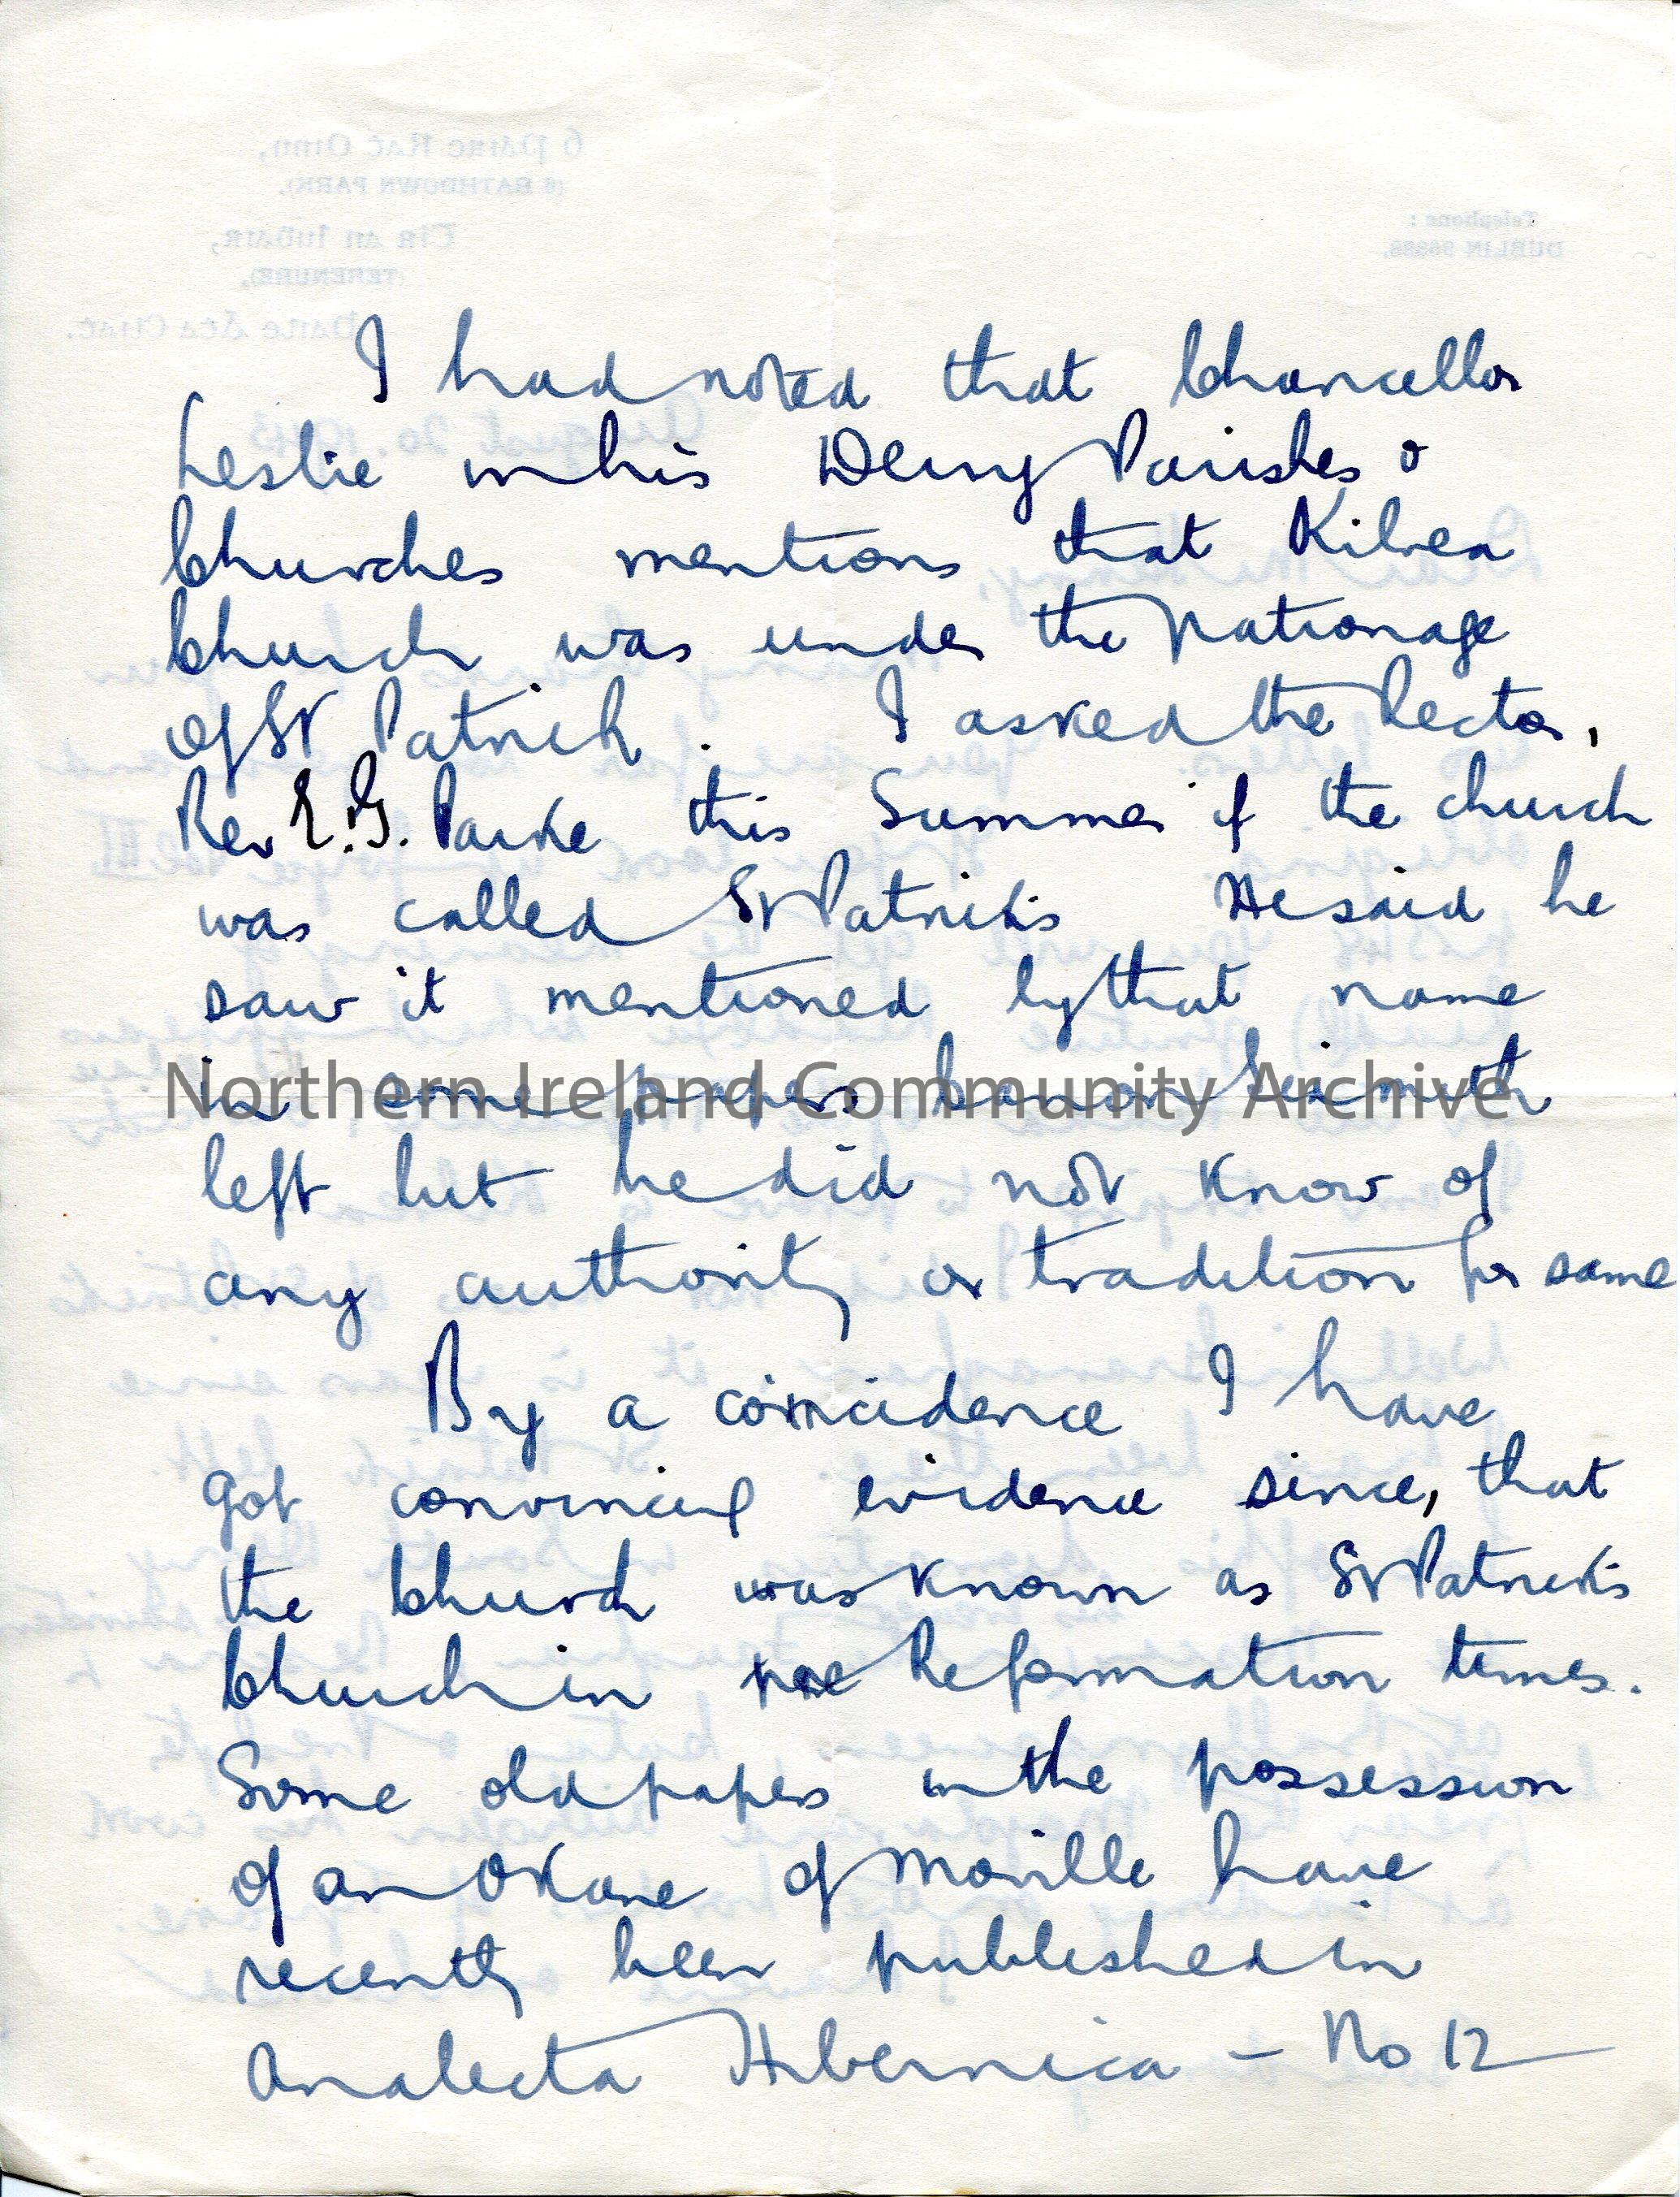 I had noted that Chancellor
Leslie in his Derry Parishes &
Churches mentions that Kilrea
Church was under the patronage
of St Patrick. I asked the Rector,
Rev E.G. Parke this Summer if the church
was called St Patrick's He said he
saw it mentioned by that name
in some papers Canon Sixmith
Northern Ireland Community Archive
left but he did not know of
any authority or tradition for same
By a coincidence I have
got convincing evidence since, that
the Church was known as St Patrick's
Church in pre Reformation times.
Some old papers in the possession
of an O'Kane of Moville have
recently been published in
Analecta Hibernica - No 12